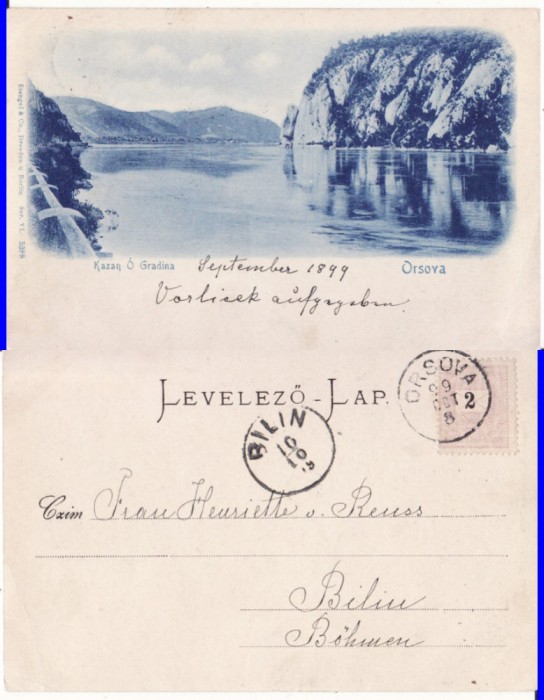 Stengel & Co., Dresden u. Berlin Ser. VI. 5598
Kazan Ó Gradina
Orsova
September 1899
Vorlisek aufgegeben.
LEVELEZŐ-LAP.
ORSOVA
2
BILIN
Czim Frau Henriette v. Reuss
Bilin
Böhmen